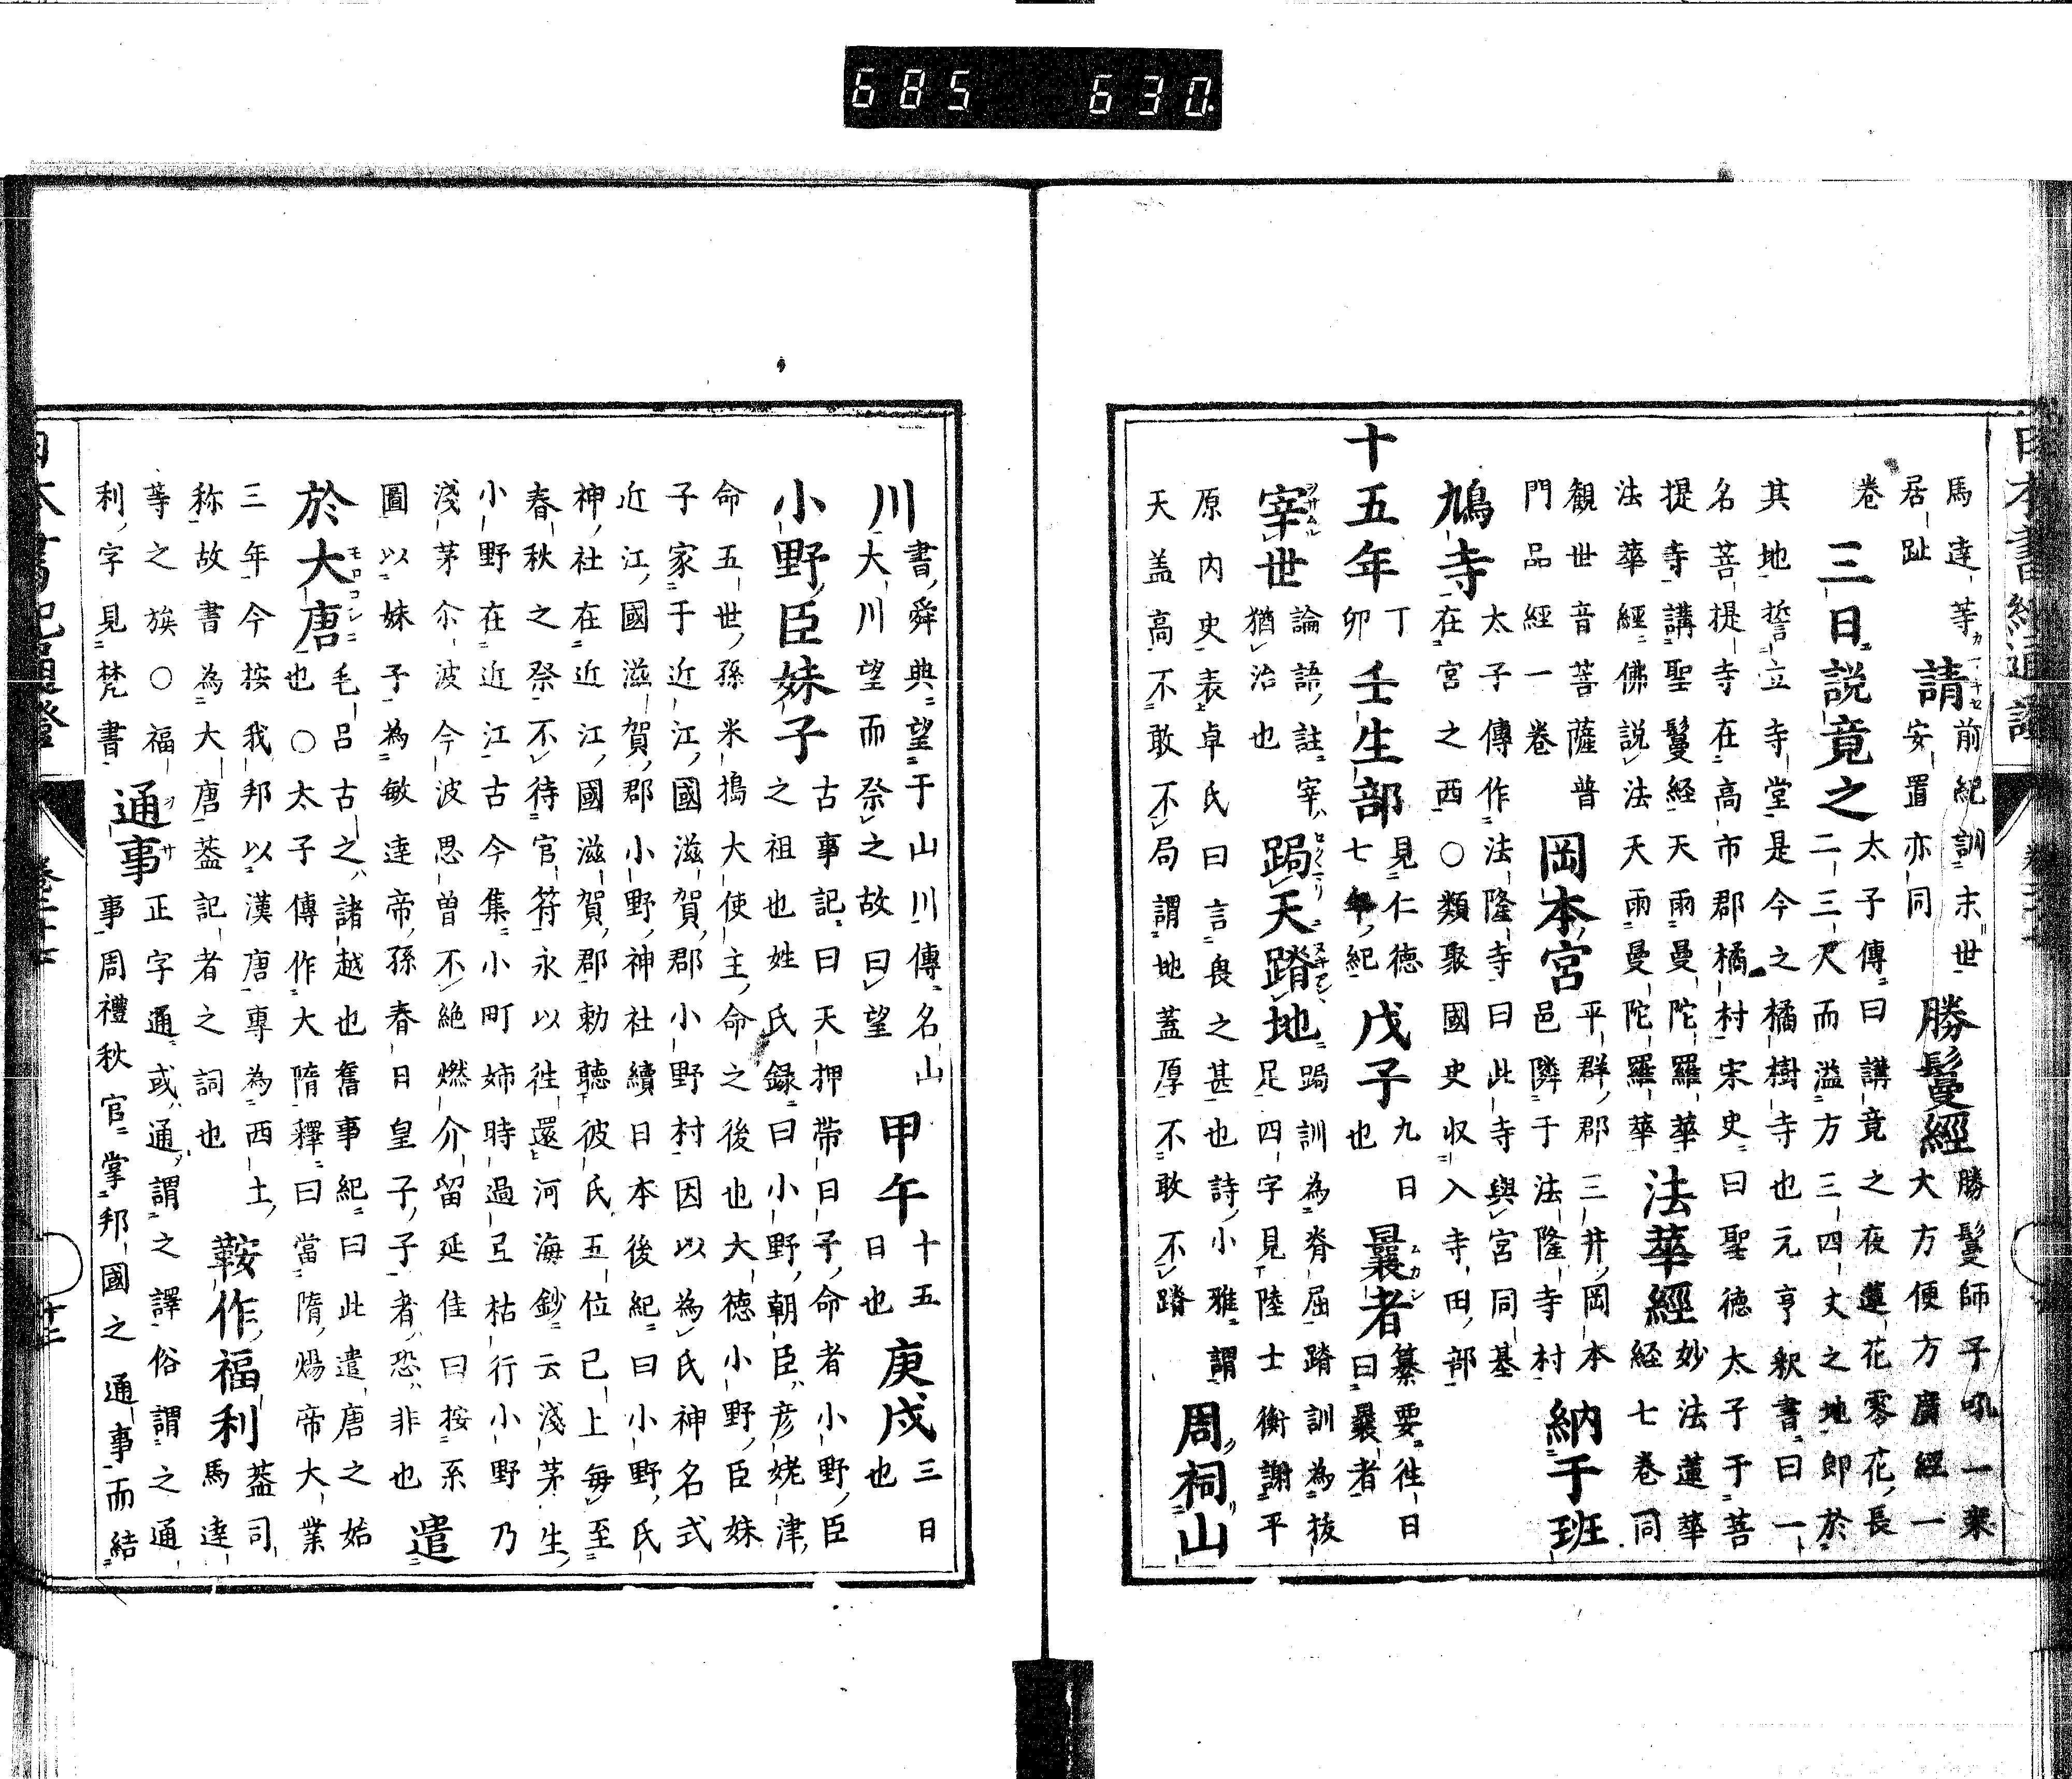 685 630
馬達等
居趾
請
前紀訓末世
安置亦同
勝鬘經
勝鬘師子吼一乘
大方便方廣經一
卷
三日說竟之
太子傳曰講竟之夜蓮花零花長
二三尺而溢方三四丈之地郎於
其地誓立寺堂是今之橘樹寺也元亨釈書曰一
名菩提寺在高市郡橘村宋史曰聖徳太子于菩
提寺講聖鬘経天雨曼陀羅華
法華經佛說法天雨曼陀羅華
法華經
妙法蓮華
経七卷同
観世音菩薩普
門品經一卷
岡本宮
平群郡三井岡本
邑隣于法隆寺村
納于班
鳩寺
太子傳作法隆寺曰此寺與宮同基
在宮之西〇類聚國史収入寺田部
十五年
丁
卯
壬生部
見仁徳
七年紀
戊子
九日
也
曩者
纂要往日
曰曩者
宰世
論語註宰
猶治也
跼天蹐地
跼訓為脊屈蹐訓為抜
足四字見陸士衡謝平
原内史表卓氏曰言畏之甚也詩小雅謂
天盖高不敢不局謂地蓋厚不敢不蹐
周祠山
川
書舜典望于山川傳名山
大川望而祭之故曰望
甲午
十五
日也
庚戌
三日
也
小野臣妹子
古事記曰天押帯日子命者小野臣
之祖也姓氏録曰小野朝臣彦姥津
命五世孫米搗大使主命之後也大徳小野臣妹
子家于近江國滋賀郡小野村因以為氏神名式
近江國滋賀郡小野神社續日本後紀曰小野氏
神社在近江國滋賀郡勅聴彼氏五位已上毎至
春秋之祭不待官符永以徃還河海鈔云淺茅生
小野在近江古今集小町姉時過㠯枯行小野乃
淺茅尓波今波思曽不絶燃介留延佳曰按系
圖以妹子為敏達帝孫春日皇子子者恐非也
遣
於大唐
毛呂古之諸越也舊事紀曰此遣唐之始
也〇太子傳作大隋釋曰當隋煬帝大業
三年今按我邦以漢唐專為西土
称故書為大唐蓋記者之詞也
鞍作福利
蓋司
馬達
等之族〇福
利字見梵書
通事
正字通通或通謂之譯俗謂之通
事周禮秋官掌邦國之通事而結